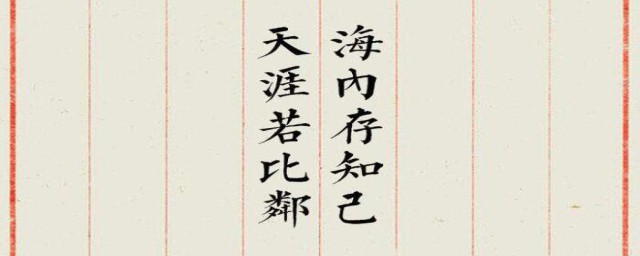 海內存知己
天涯若比鄰